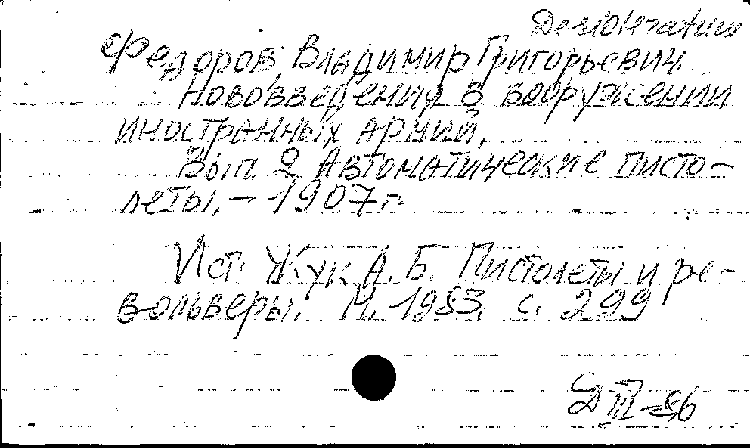 Desideratum
Федоров Владимир Григорьевич
Нововведения в вооружении
иностранных армий.
Вып. 2 Автоматические писто-
леты. – 1907 г.
Ист: Жук А. Б. Пистолеты и ре-
вольверы. М. 1983. с. 299